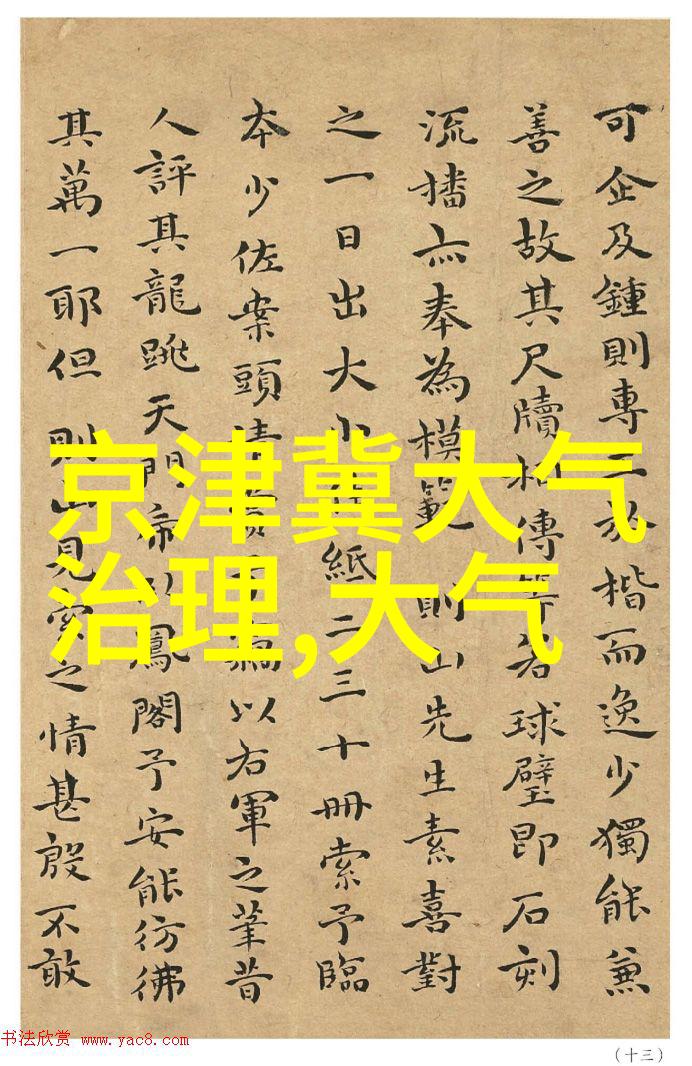 可企及鍾則專工於楷而逸少獨能兼
善之故其尺牘相傳若球璧即石刻
流播亦奉為模範則山先生素喜對
之一日出大小紙二三十冊索予臨
本少佐案頭清以右軍之筆昔
人評其龍跳天門鳳閣予安能彷彿
其萬一耶但則山見索之情甚殷不敢
京津冀大气
治理,大气
书法欣赏 www.yac8.com
(十三)